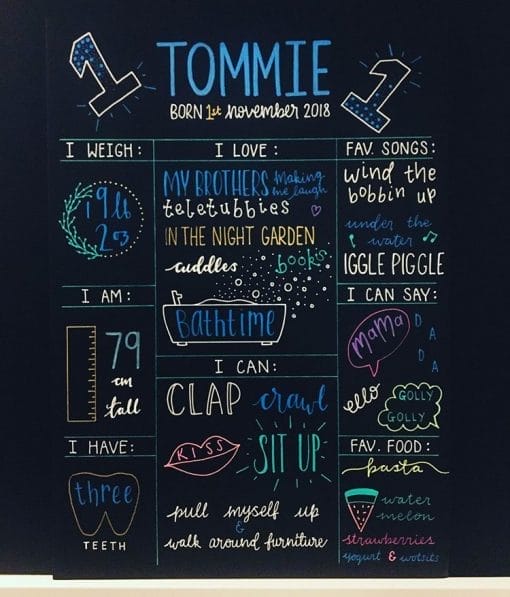 1
TOMMIE
1
BORN 1st november 2018
I WEIGH:
19lb
2oz
I AM:
79
cm
tall
I HAVE:
three
TEETH
I LOVE:
MY BROTHERS making
me laugh
teletubbies
IN THE NIGHT GARDEN
cuddles
books
Bathtime
I CAN:
CLAP crawl
KISS
SIT UP
pull myself up
&
walk around furniture
FAV. SONGS:
wind the
bobbin up
under the
water
IGGLE PIGGLE
I CAN SAY:
MaMa
DADA
ello
GOLLY
GOLLY
FAV. FOOD:
pasta
water
melon
strawberries
yogurt & wotsits